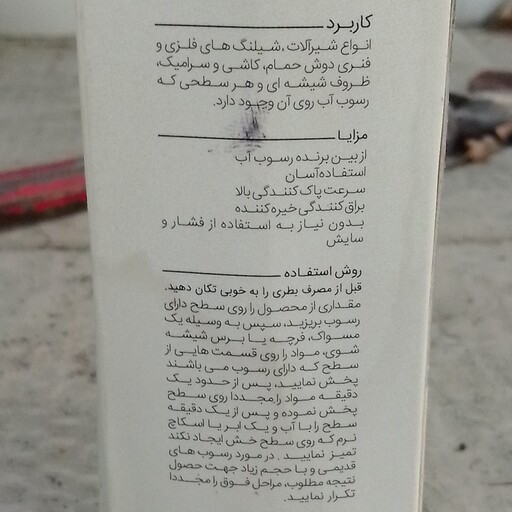 کاربرد
انواع شیرآلات، شیلنگ های فلزی و
فنری دوش حمام، کاشی و سرامیک،
ظروف شیشه ای و هر سطحی که
رسوب آب روی آن وجود دارد.
مزایا
از بین برنده رسوب آب
استفاده آسان
سرعت پاک کنندگی بالا
براق کنندگی خیره کننده
بدون نیاز به استفاده از فشار و
سایش
روش استفاده
قبل از مصرف بطری را به خوبی تکان دهید.
مقداری از محصول را روی سطح دارای
رسوب بریزید، سپس به وسیله یک
مسواک، فرچه یا برس شیشه
شوی، مواد را روی قسمت هایی از
سطح که دارای رسوب می باشند
پخش نمایید، پس از حدود یک
دقیقه مواد را مجددا روی سطح
پخش نموده و پس از یک دقیقه
سطح را با آب و یک ابر یا اسکاچ
نرم که روی سطح خش ایجاد نکند
تمیز نمایید. در مورد رسوب های
قدیمی و با حجم زیاد جهت حصول
نتیجه مطلوب، مراحل فوق را مجددا
تکرار نمایید.